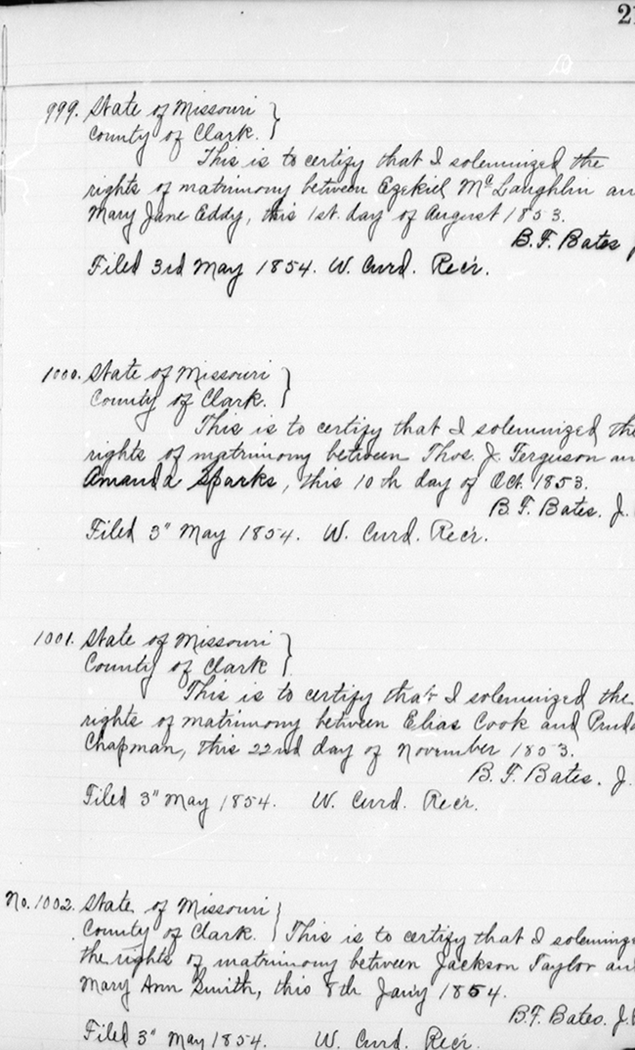 999. State of Missouri }
County of Clark. }
This is to certify that I solemnized the
rights of matrimony between Ezekiel McLaughlin an
Mary Jane Eddy, this 1st. day of August 1853.
B.F. Bates J
Filed 3rd May 1854. W. Curd. Rec'r.
1000. State of Missouri }
County of Clark. }
This is to certify that I solemnized the
rights of matrimony between Thos. J. Ferguson an
Amanda Sparks, this 10th day of Oct. 1853.
B.F. Bates. J.
Filed 3" May 1854. W. Curd. Rec'r.
1001. State of Missouri }
County of Clark }
This is to certify that I solemnized the
rights of matrimony between Elias Cook and Prud
Chapman, this 22nd day of November 1853.
B.F. Bates. J.
Filed 3" May 1854. W. Curd. Rec'r.
No. 1002. State of Missouri }
County of Clark. } This is to certify that I solemnize
the rights of matrimony between Jackson Taylor an
Mary Ann Smith, this 8th Jan'y 1854.
B.F. Bates. J.
Filed 3" May 1854. W. Curd. Rec'r.